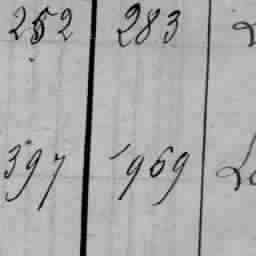 252 283
397 969